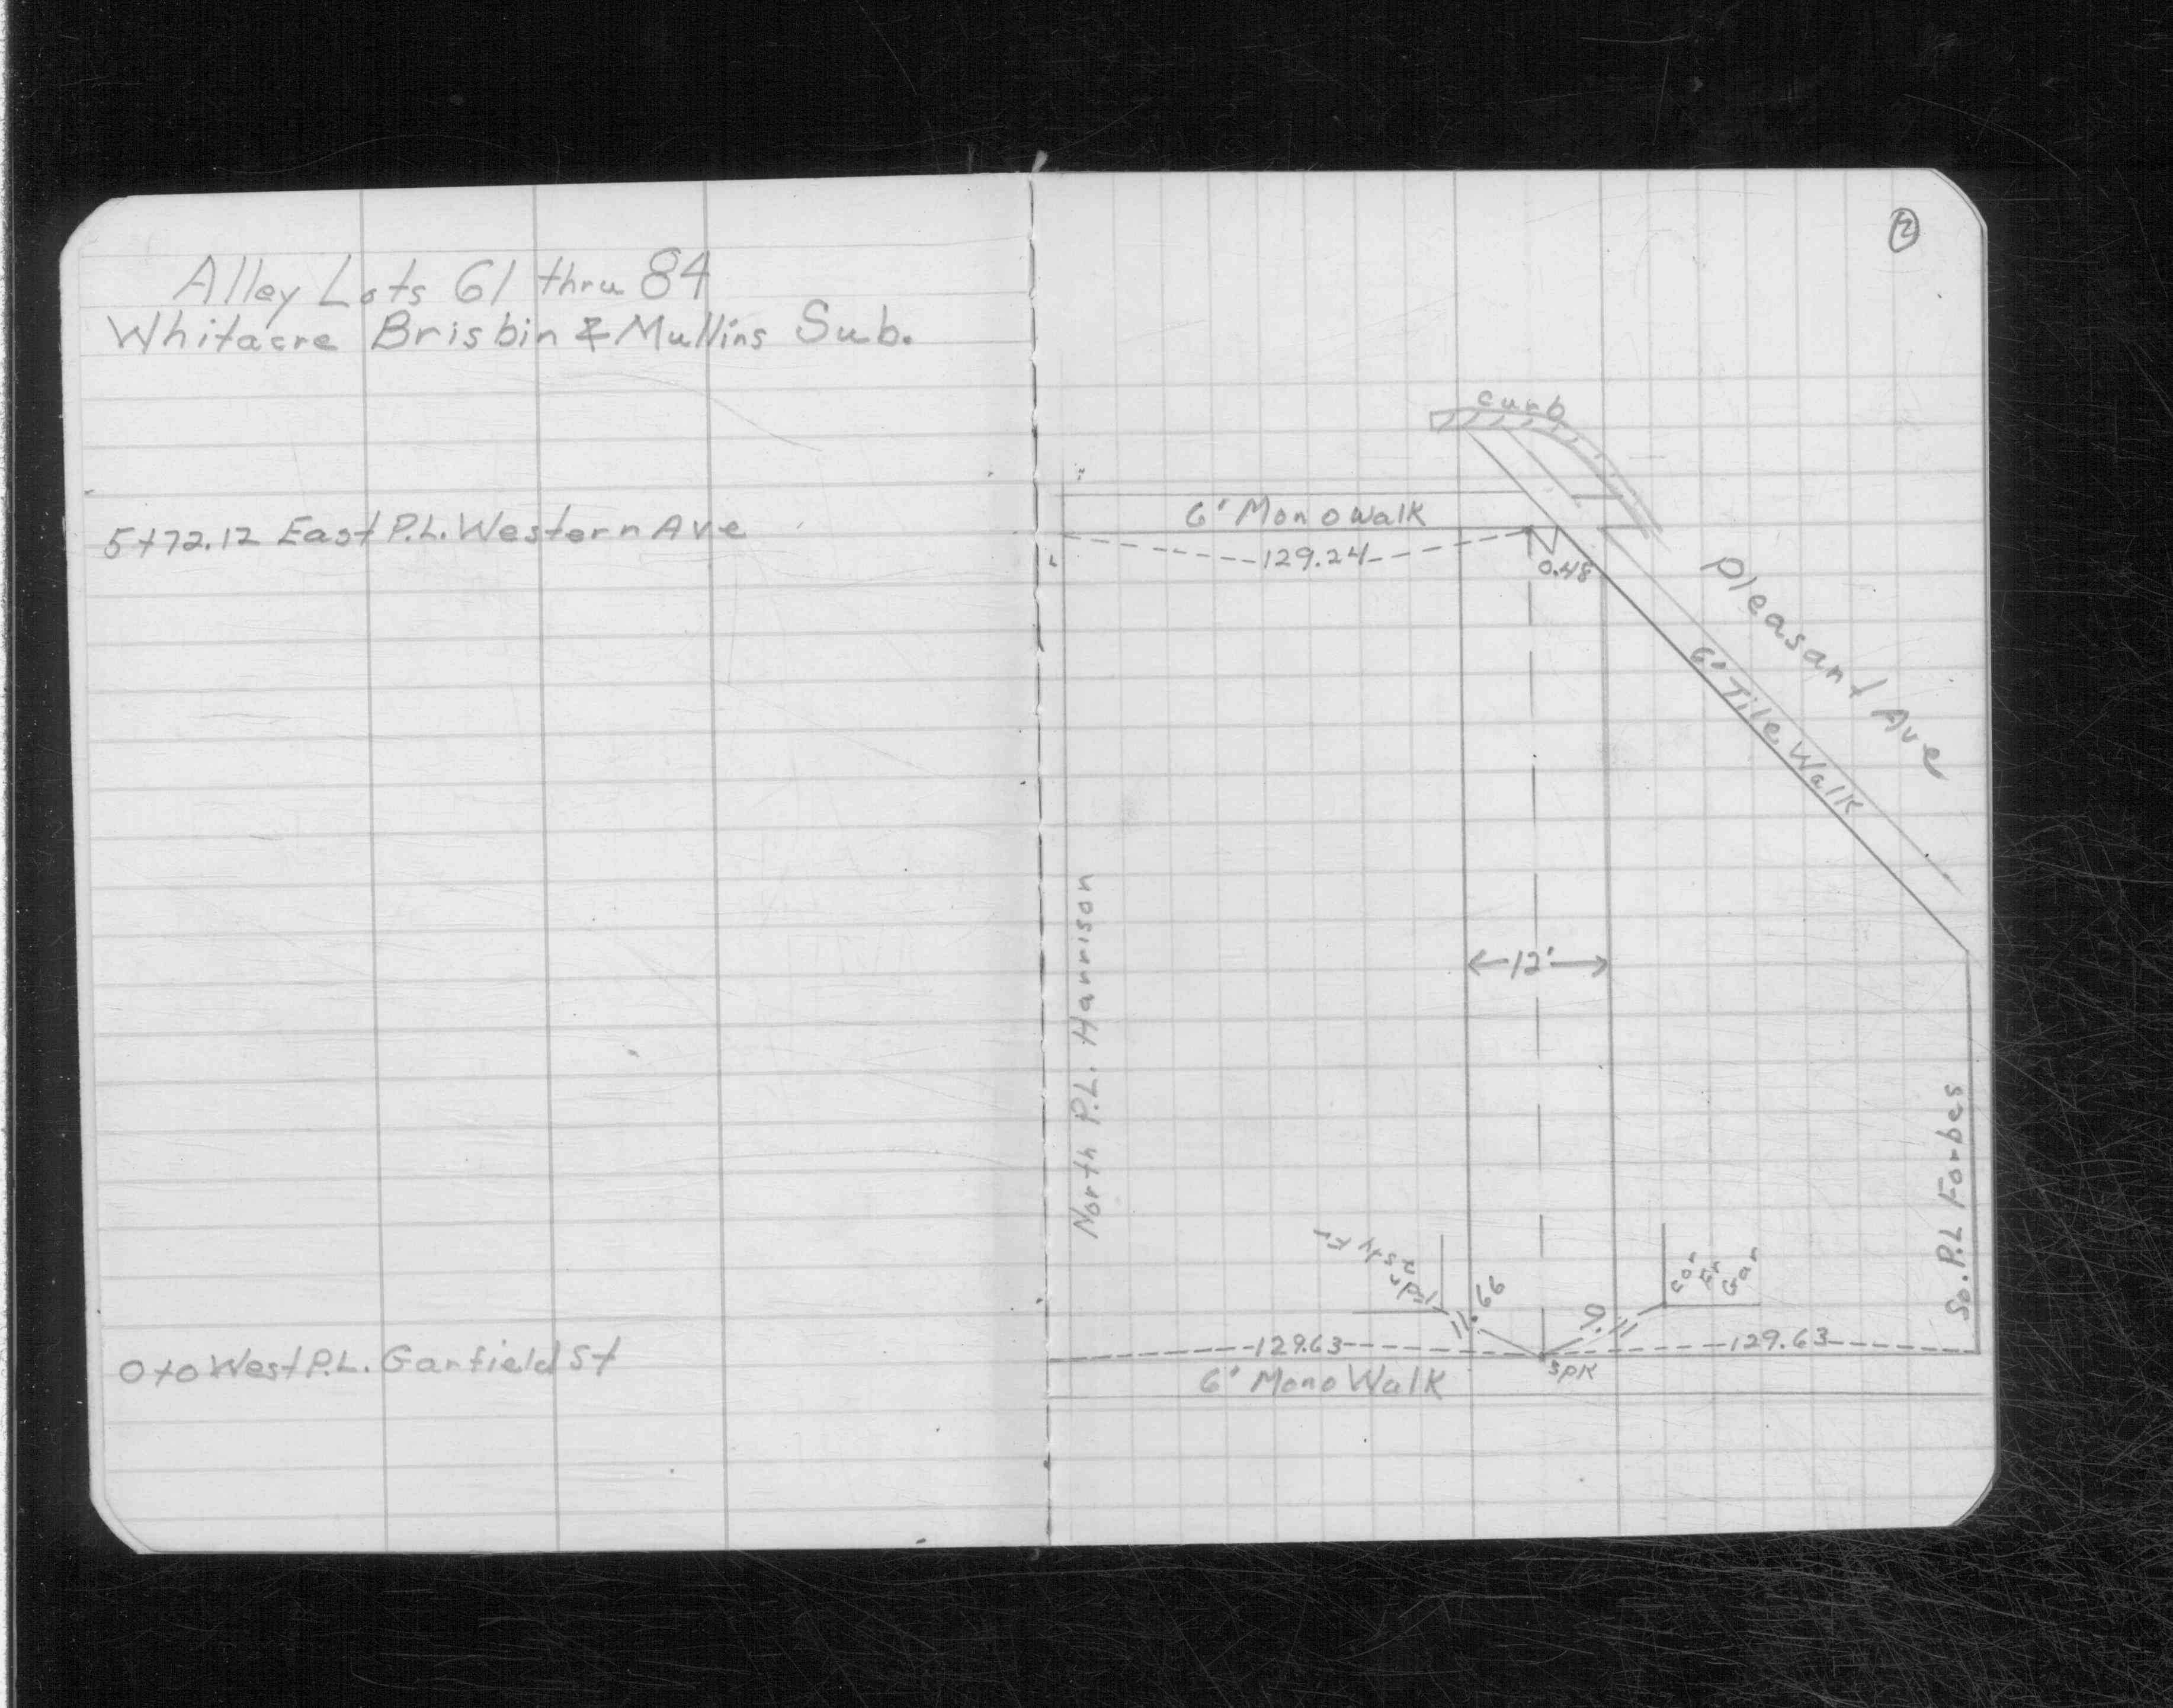 Alley Lots 61 thru 84
Whitacre Brisbin & Mullins Sub.
5+72.12 East P.L. Western Ave
0+0 West P.L. Garfield St
2
curb
6' Mono Walk
129.24
0.48
Pleasant Ave
6' Tile Walk
North P.L. Harrison
12'
So. P.L Forbes
cor
Fr
Gar
129.63
129.63
spk
6' Mono Walk